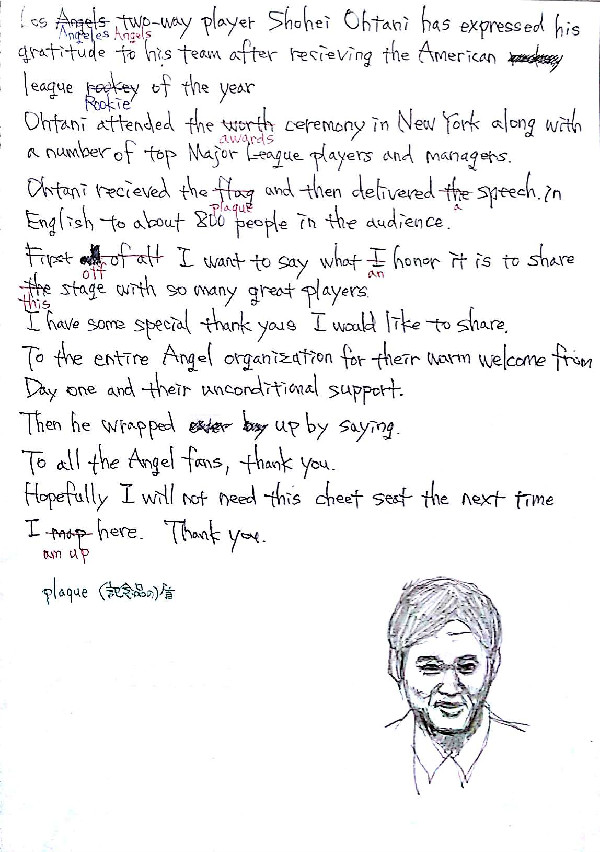 Los Angels two-way player Shohei Ohtani has expressed his
Angeles Angels
gratitude to his team after recieving the American
league rookey of the year
Rookie
Ohtani attended the worth ceremony in New York along with
awards
a number of top Major League players and managers.
Ohtani recieved the flag and then delivered the speech. in
plaque a
English to about 800 people in the audience.
First of all I want to say what I honor it is to share
off an
the stage with so many great players.
this
I have some special thank yous I would like to share.
To the entire Angel organization for their warm welcome from
Day one and their unconditional support.
Then he wrapped up by saying.
To all the Angel fans, thank you.
Hopefully I will not need this cheet seet the next time
I map here. Thank you.
am up
plaque (記念品の)盾